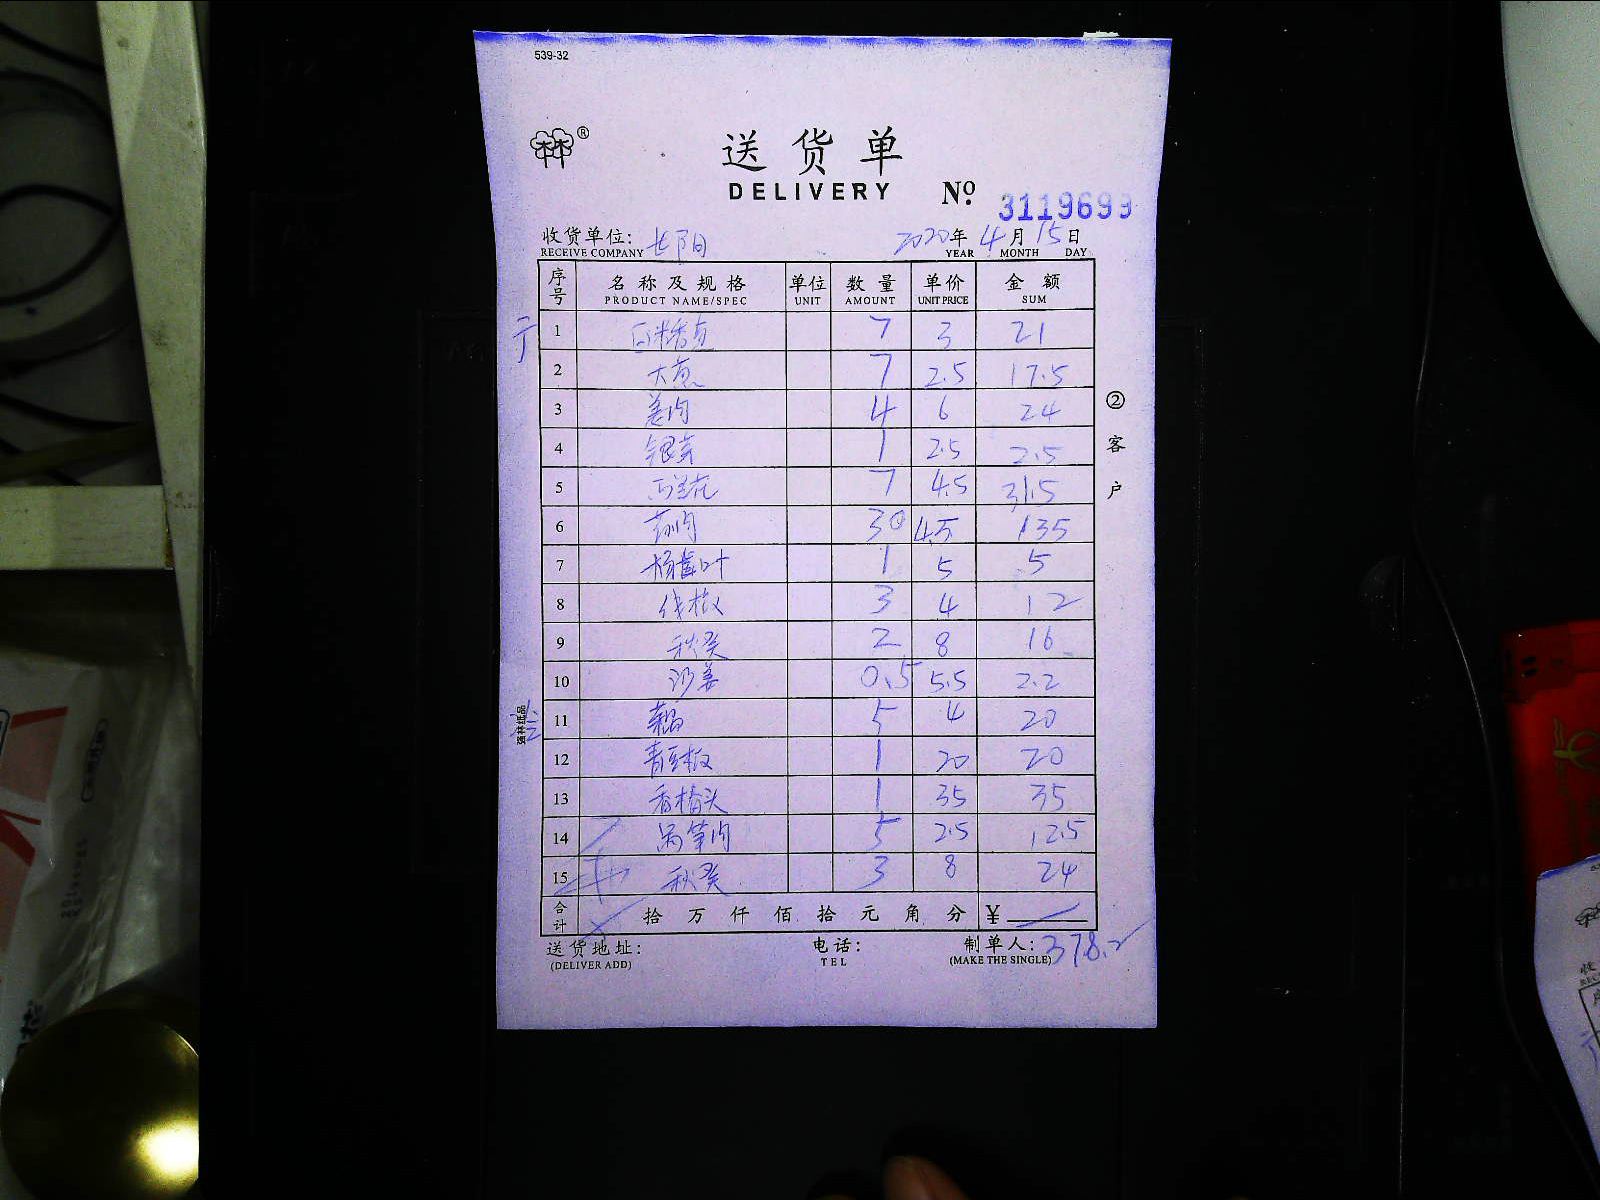 539-32
®
送货单
DELIVERY Nº 3119699
收货单位: 长阳 2020年 4月 15日
RECEIVE COMPANY YEAR MONTH DAY
序号 名称及规格 单位 数量 单价 金额
PRODUCT NAME/SPEC UNIT AMOUNT UNIT PRICE SUM
1 7 3 21
2 大葱 7 2.5 17.5
3 姜肉 4 6 24
4 银芽 1 2.5 2.5
5 西兰花 7 4.5 31.5
6 30 4.5 135
7 1 5 5
8 线椒 3 4 12
9 秋葵 2 8 16
10 沙姜 0.5 5.5 2.2
11 5 4 20
12 青豆板 1 20 20
13 香椿头 1 35 35
14 莴笋肉 5 2.5 12.5
15 秋葵 3 8 24
合计 拾 万 仟 佰 拾 元 角 分 ¥
送货地址: 电话: 制单人: 378.2
(DELIVER ADD) TEL (MAKE THE SINGLE)
② 客户
强林纸品